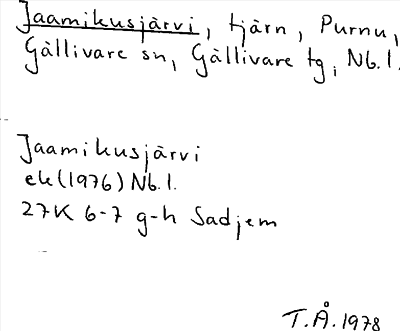 Jaamikusjärvi, tjärn, Purnu,
Gällivare sn, Gällivare tg, Nb.l.
Jaamikusjärvi
ek(1976) Nb.l.
27K 6-7 g-h Sadjem
T.Å.1978